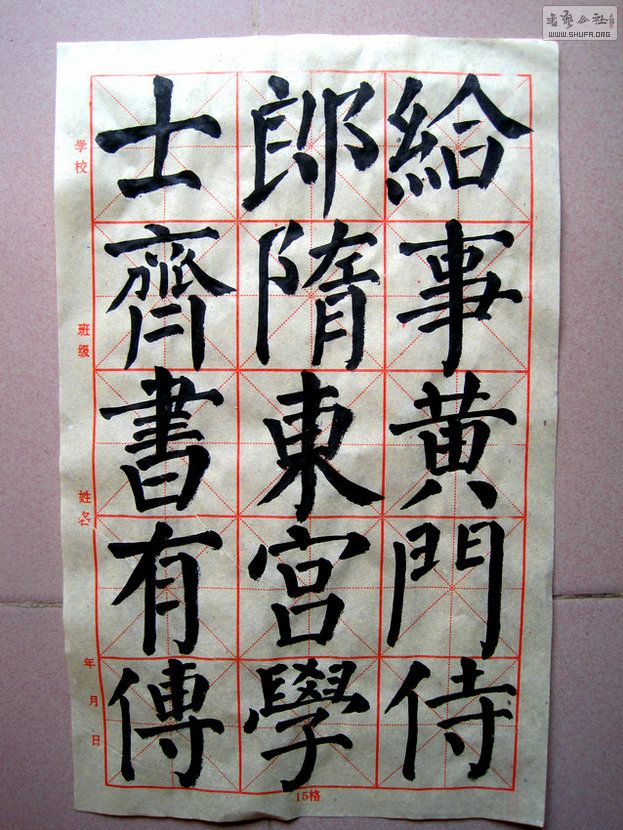 給事黄門侍
郎隋東宮學
士齊書有傳
学校
班级
姓名
年月日
15格
書藝公社
WWW.SHUFA.ORG